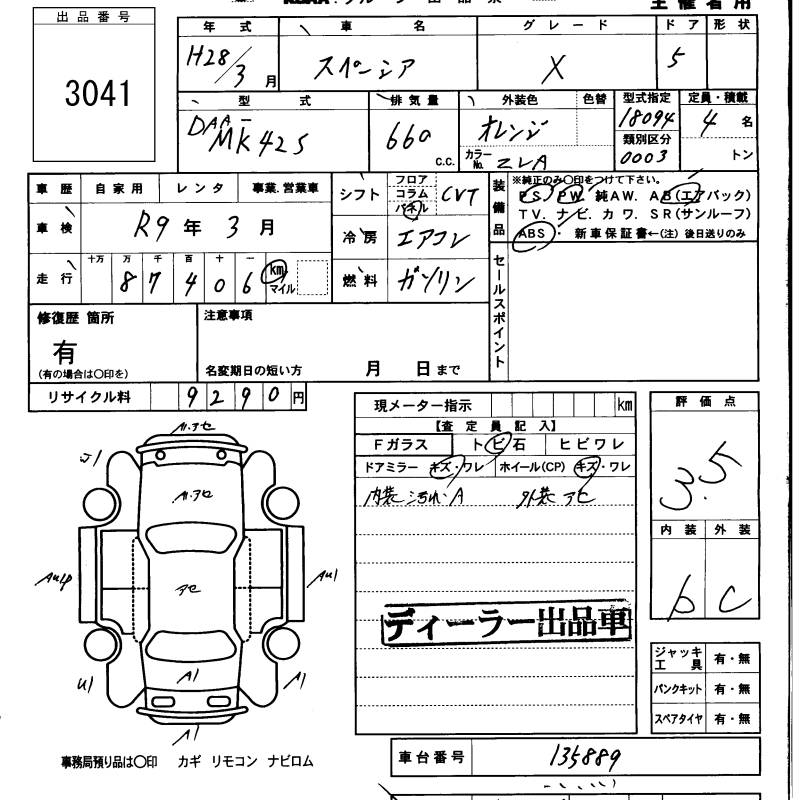 出品番号
3041
年式 車名 グレード ドア 形状
H28/3月 スペーシア X 5
型式 排気量 外装色 色替 型式指定 定員・積載
DAA-MK42S 660 c.c. オレンジ 18094 4名
カラーNo. ZLA 類別区分 0003 トン
車歴 自家用 レンタ 事業.営業車
シフト フロア コラム パネル CVT
装備品 ※純正のみ〇印をつけて下さい。
PS. PW. 純AW. AB(エアバック)
TV. ナビ. カワ. SR(サンルーフ)
ABS・ 新車保証書←(注) 後日送りのみ
車検 R9年 3月
冷房 エアコン
走行 十万 万 千 百 十 一
87406 km マイル
燃料 ガソリン
セールスポイント
修復歴 箇所
有
(有の場合は〇印を)
注意事項
名変期日の短い方 月 日まで
リサイクル料 9290円
現メーター指示 km
【査定員記入】
Fガラス トビ石 ヒビワレ
ドアミラー キズ・ワレ ホイール(CP) キズ・ワレ
内装 汚れ・A 外装 アセ
評価点
3.5
内装 外装
b C
ディーラー出品車
ジャッキ工具 有・無
パンクキット 有・無
スペアタイヤ 有・無
A1.アセ
A1.アセ
アセ
A1
A1
U1
A1
事務局預り品は〇印 カギ リモコン ナビロム
車台番号 135889